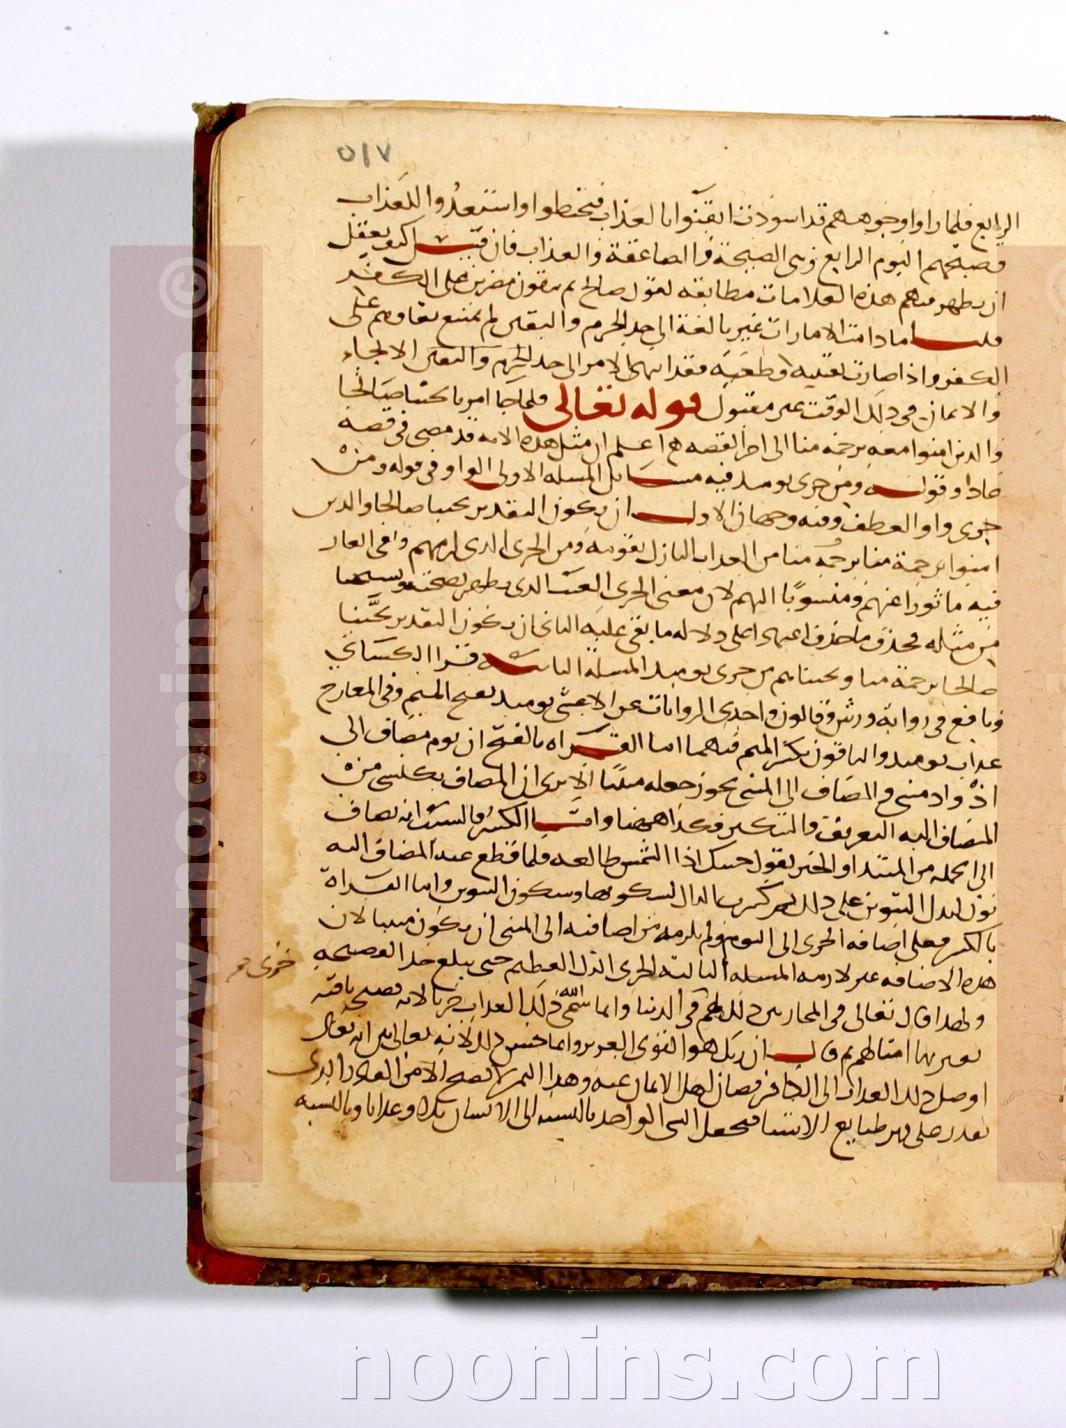 ٥١٧
الرابع فلما راوا وجوههم قد اسودت ايقنوا بالعذاب فتحنطوا واستعدوا للعذاب
فصبحهم اليوم الرابع وهي الصيحة والصاعقة والعذاب فان قيل كيف يعقل
ان يظهر فيهم هذه العلامات مطابقة لقول صالح ثم يبقون مصرين على الكفر
قلنا ما دامت الامارات غير بالغة الى حد الجزم واليقين لم يمتنع بقاوهم على
الكفر واذا صارت يقينية قطعية فقد انتهى الامر الى حد الجزم واليقين الالجاء
والايمان في ذلك الوقت غير مقبول قوله تعالى فلما جا امرنا نجينا صالحا
والذين امنوا معه برحمة منا الى اخر القصه اعلم ان مثل هذه الاية قد مضى في قصة
عاد وقوله ومن خزى يوميذ فيه مسايل المسلة الاولى الواو في قوله ومن
خزى واو العطف وفيه وجهان الاول ان يكون التقدير نجينا صالحا والذين
امنوا برحمة منا من العذاب النازل بقومه ومن الخزى الذى لزمهم وبقى العار
فيه ماثورا عنهم ومنسوبا اليهم لان معنى الخزى العيب الذى يظهر فضيحته ويستحيا
من مثله فحذف ما حذف اعتمادا على دلالة ما بقى عليه الثانى ان يكون التقدير نجينا
صالحا برحمة منا ونجيناهم من خزى يوميذ المسلة الثانية قرا الكسائي
ونافع في رواية ورش وقالون واحدى الروايات عن الاعشى يوميذ بفتح الميم وفي المعارج
عذاب يوميذ والباقون بكسر الميم فيهما اما القراه بالفتح ان يوم مضاف الى
اذ واذ مبنى والمضاف الى المبنى يجوز جعله مبنيا الا يرى ان المضاف يكتسى من
المضاف اليه التعريف والتنكير فكذا ههنا واما الكسر فالسبب انه يضاف
الى الجملة من المبتدا والخبر يقول جيتك اذا الشمس طالعه فلما قطع عنه المضاف اليه
نون ليدل التنوين على ذلك ثم كسرت الذال لسكونها وسكون التنوين واما القراة
بالكسر فعلى اضافه الخزى الى اليوم ولم يلزمه من اضافته الى المبنى ان يكون مبنيا لان
هذه الاضافه غير لازمه المسلة الثالثة الخزى الذل العظيم حتى يبلغ حد الفضيحه
خزى
ولهذا قال تعالى في المحاربين ذلك لهم خزى في الدنيا وانما سمى الله ذلك العذاب خزيا لانه فضيحة باقية
يعتبر بها امثالهم ثم قال ان ربك هو القوى العزيز وانما حسن ذلك لانه تعالى بين انه تعالى
اوصل ذلك العذاب الى الكافر وصان اهل الايمان عنه وهذا التمييز لا يصح الا من القادر الذى
يقدر على قهر طبايع الاشيا فيجعل الشى الواحد بالنسبه الى الانسان بلاء وعذابا وبالنسبه
www.noonins.com ©
noonins.com